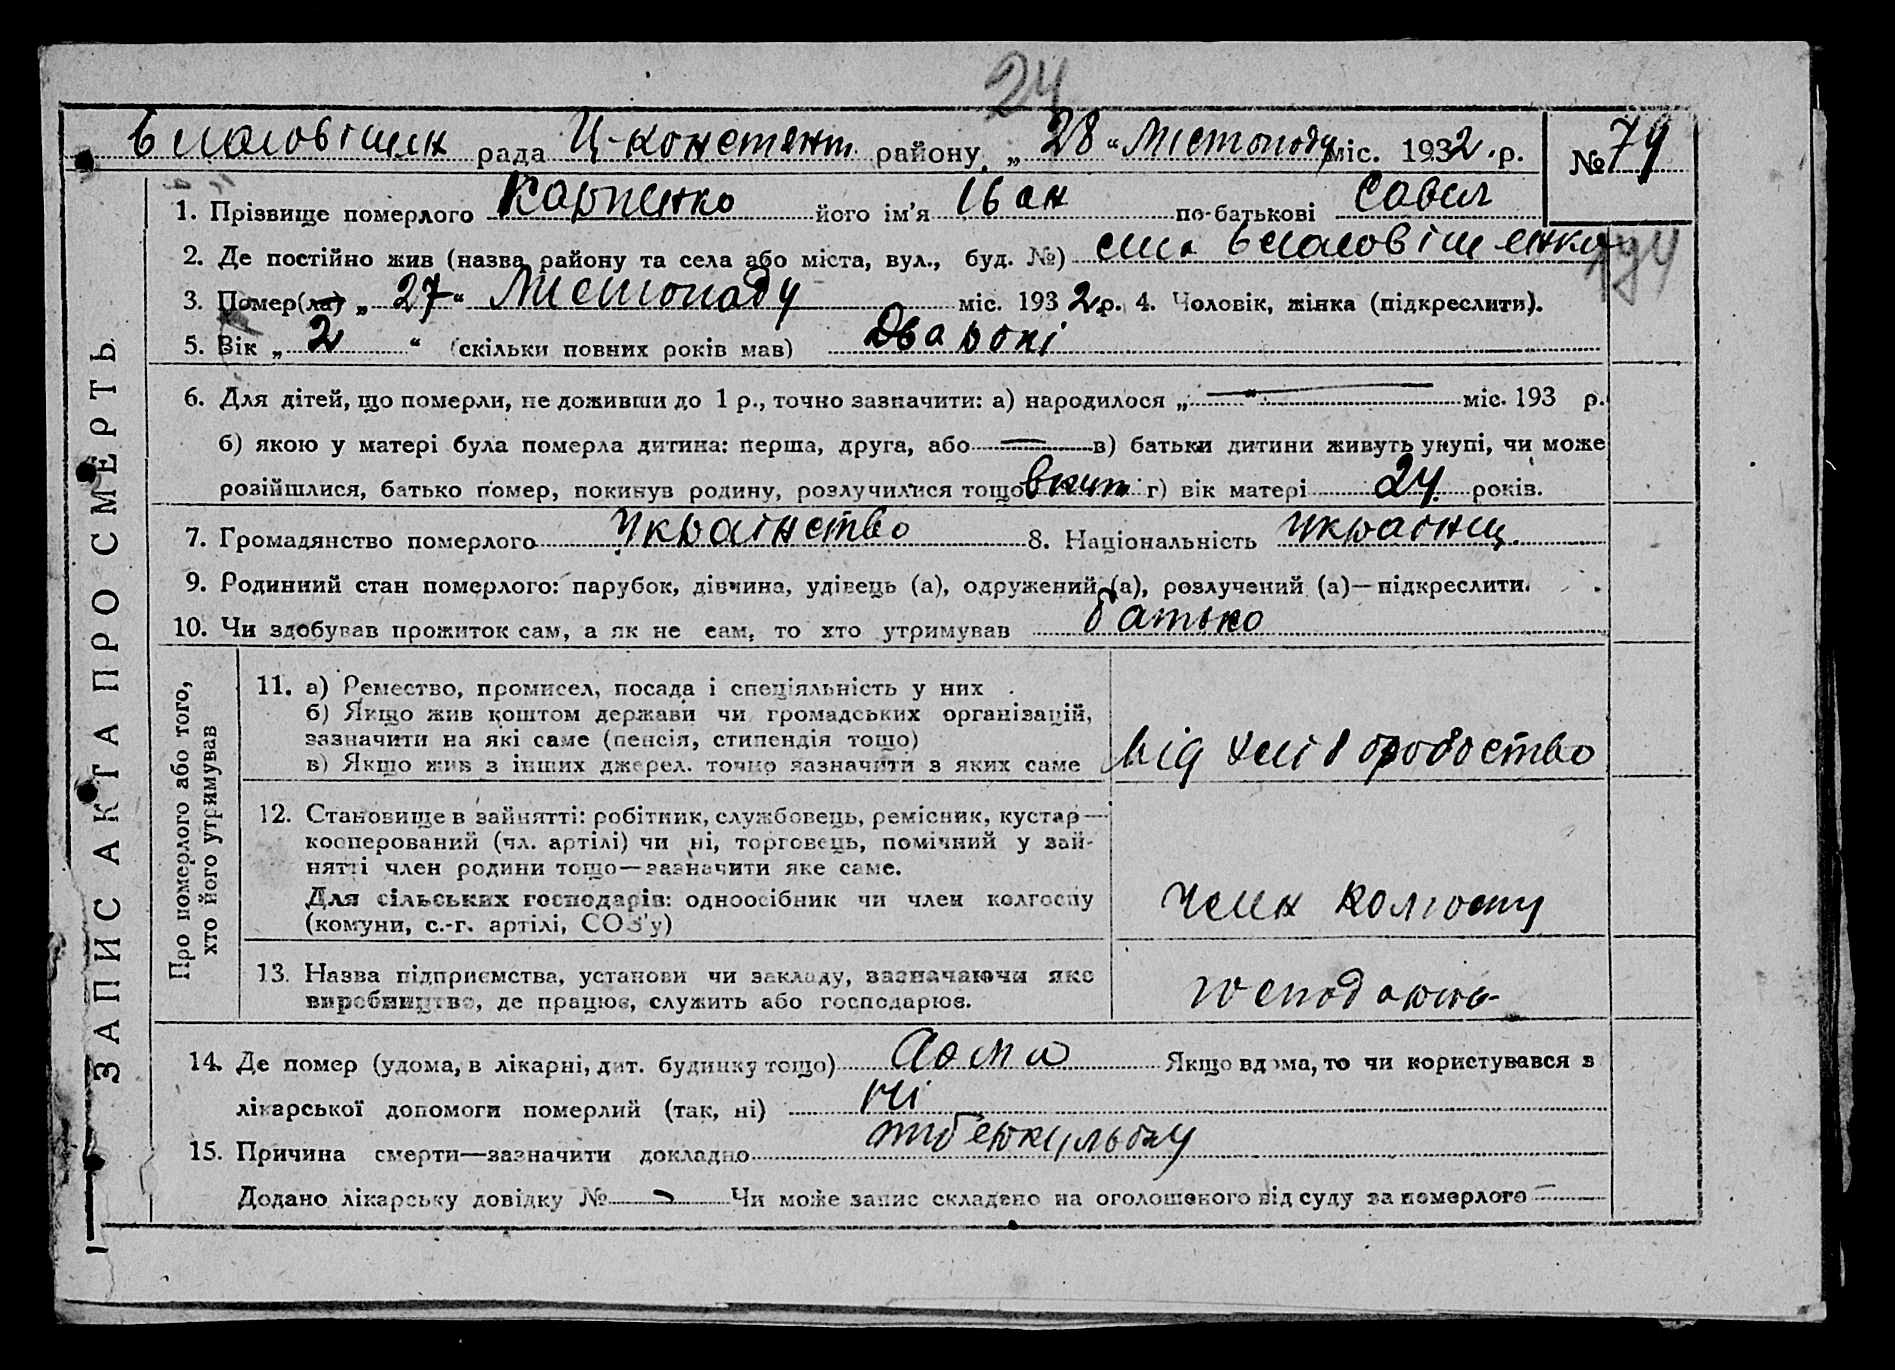 24
рада Ц-констент району, „ 28 “ Листопаду міс. 1932 р. № 79
1. Прізвище померлого Карпенко його ім'я Іван по-батькові Савел
194
2. Де постійно жив (назва району та села або міста, вул., буд. №)
3. Помер(ла) „ 27 “ Листопаду міс. 1932 р. 4. Чоловік, жінка (підкреслити).
5. Вік „ 2 “ (скільки повних років мав) Два рокі
6. Для дітей, що померли, не доживши до 1 р., точно зазначити: а) народилося „ — “ міс. 193 р.
б) якою у матері була померла дитина: перша, друга, або — в) батьки дитини живуть укупі, чи може
розійшлися, батько помер, покинув родину, розлучилися тощо вкуп г) вік матері 24 років.
7. Громадянство померлого Украінство 8. Національність Украінец.
9. Родинний стан померлого: парубок, дівчина, удівець (а), одружений (а), розлучений (а)—підкреслити.
10. Чи здобував прожиток сам, а як не сам, то хто утримував батько
ЗАПИС АКТА ПРО СМЕРТЬ
Про померлого або того,
хто його утримував
11. а) Ремество, промисел, посада і спеціяльність у них
б) Якщо жив коштом держави чи громадських організацій,
зазначити на які саме (пенсія, стипендія тощо)
в) Якщо жив з інших джерел. точно зазначити з яких саме
від хліборобоство
12. Становище в зайнятті: робітник, службовець, ремісник, кустар—
кооперований (чл. артілі) чи ні, торговець, помічний у зай-
нятті член родини тощо—зазначити яке саме.
Для сільських господарів: одноосібник чи член колгоспу
(комуни, с.-г. артілі, СОЗ'у)
член колгоспу
13. Назва підприємства, установи чи закладу, зазначаючи яке
виробництво, де працює, служить або господарює.
14. Де помер (удома, в лікарні, дит. будинку тощо) дома Якщо вдома, то чи користувався з
лікарської допомоги померлий (так, ні) ні
15. Причина смерти—зазначити докладно
Додано лікарську довідку № — Чи може запис складено на оголошеного від суду за померлого —